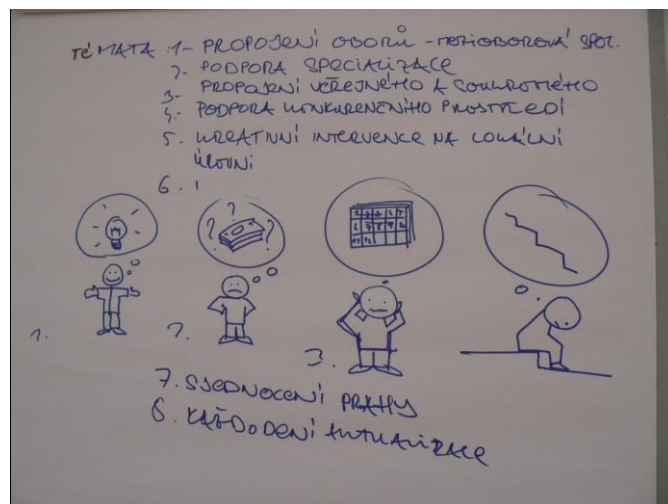 TÉMATA :1- PROPOJENÍ OBORŮ - MEZIOBOROVÁ SPOL.
2. PODPORA SPECIALIZACE
3- PROPOJENÍ VEŘEJNÉHO A SOUKROMÉHO
4. PODPORA KONKURENČNÍHO PROSTŘEDÍ
5. KREATIVNÍ INTERVENCE NA LOKÁLNÍ
ÚROVNI
6. 1
? ? ?
1.
2.
3.
7. SJEDNOCENÍ PRAHY
8. KAŽDODENÍ AKTUALIZACE